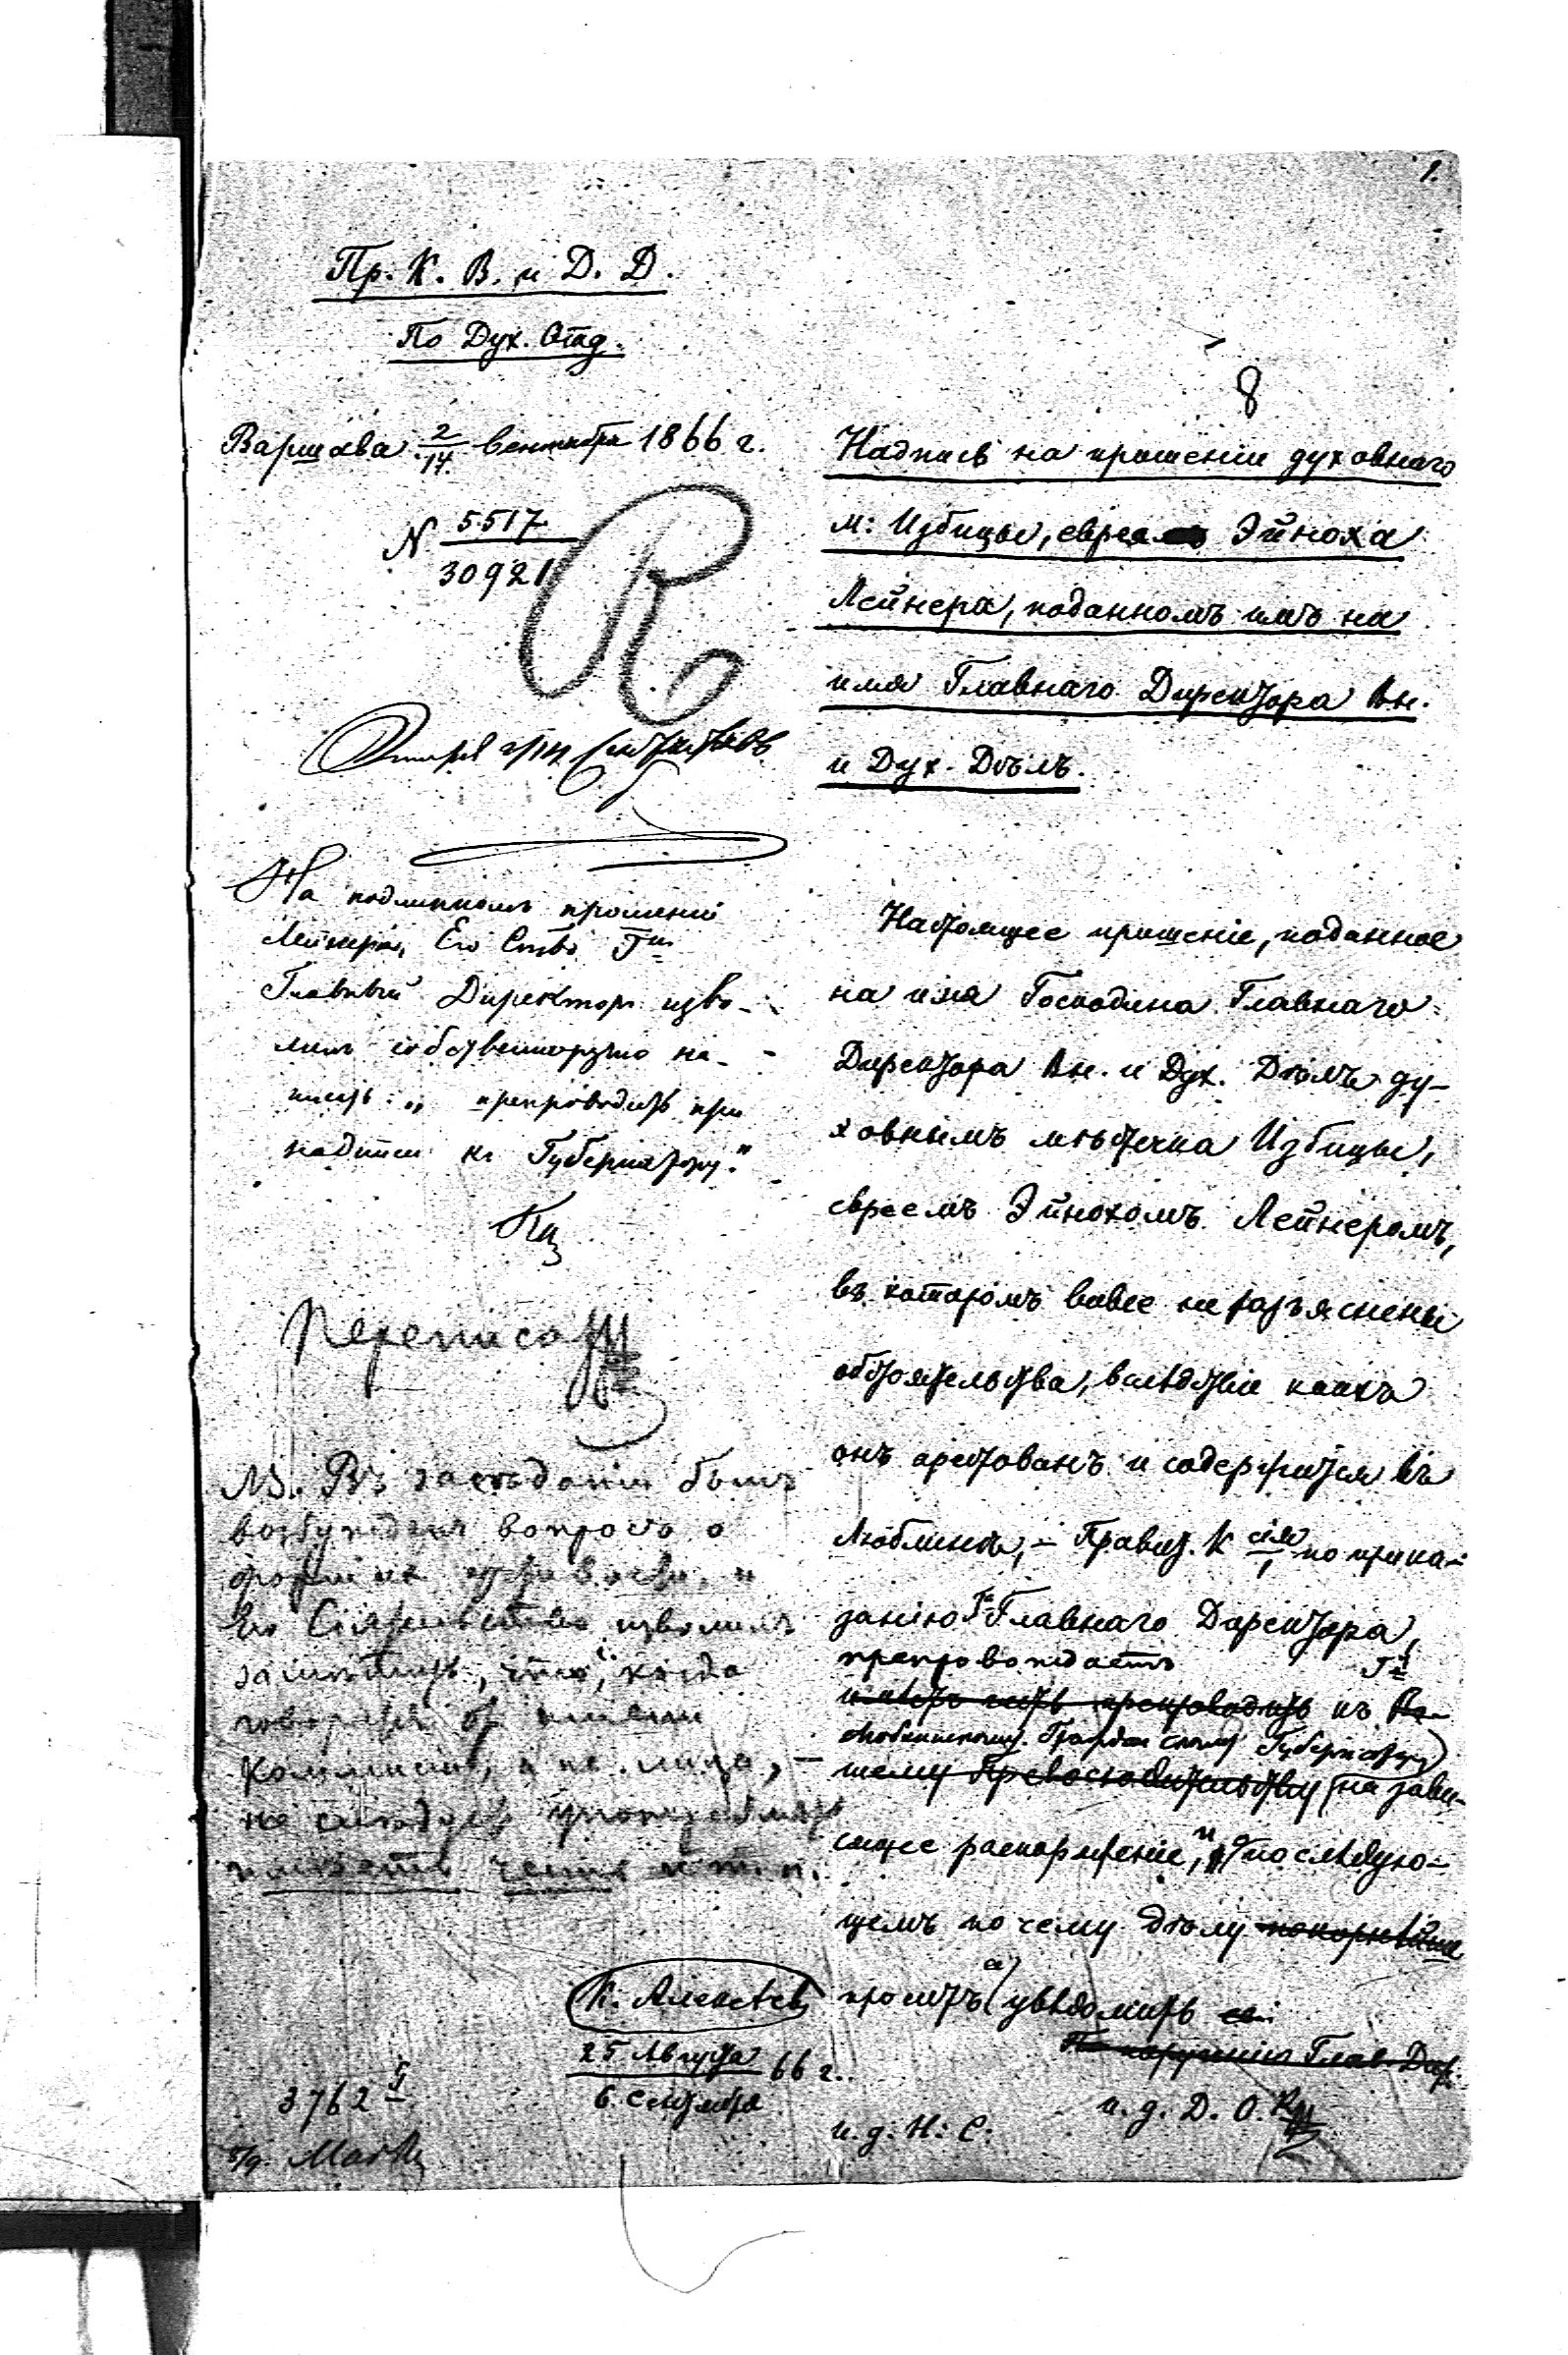 1.
Пр. К. В. и Д. Д.
По Дух. Отд.
Варшава 2/14 Сентября 1866 г.
N 5517/30921
R
На подлинномъ прошеніи
Лейнера, Его Ство Гнъ
Главный Директоръ изво-
лилъ собственноручно на-
писать: „препроводить при
надписи къ Губернатору."
Переписать
NB. Въ засѣданіи былъ
возбужденъ вопросъ о
формѣ и
Его Сіятельство изволилъ
замѣтить, что, когда
говорятъ отъ имени
Коммисіи, а не лица, –
не слѣдуетъ употреблять
имѣетъ честь и т. п.
К. Алексѣевъ
25 Августа
6 Сентября 66 г.
3762
5/9.
8
Надпись на прошеніи духовнаго
м: Избицы, еврея Эйноха
Лейнера, поданномъ имъ на
имя Главнаго Директора Вн.
и Дух. Дѣлъ.
Настоящее прошеніе, поданное
на имя Господина Главнаго
Директора Вн. и Дух. Дѣлъ ду-
ховнымъ мѣстечка Избицы,
евреемъ Эйнохомъ Лейнеромъ,
въ которомъ вовсе не разъяснены
обстоятельства, вслѣдствіе коихъ
онъ арестованъ и содержится въ
Люблинѣ, – Правит. К сія по прика-
занію Гна Главнаго Директора,
препровождаетъ Гну
имѣетъ честь препроводить къ Ва-
Люблинскому Гражданскому Губернатору
шему Превосходительству на зави-
сящее распоряженіе, и о послѣдую-
щемъ по сему дѣлу покорнѣйше
проситъ увѣдомить ее.
По порученію Глав. Дир.
и. д. Д. О.
и. д. Н. С.